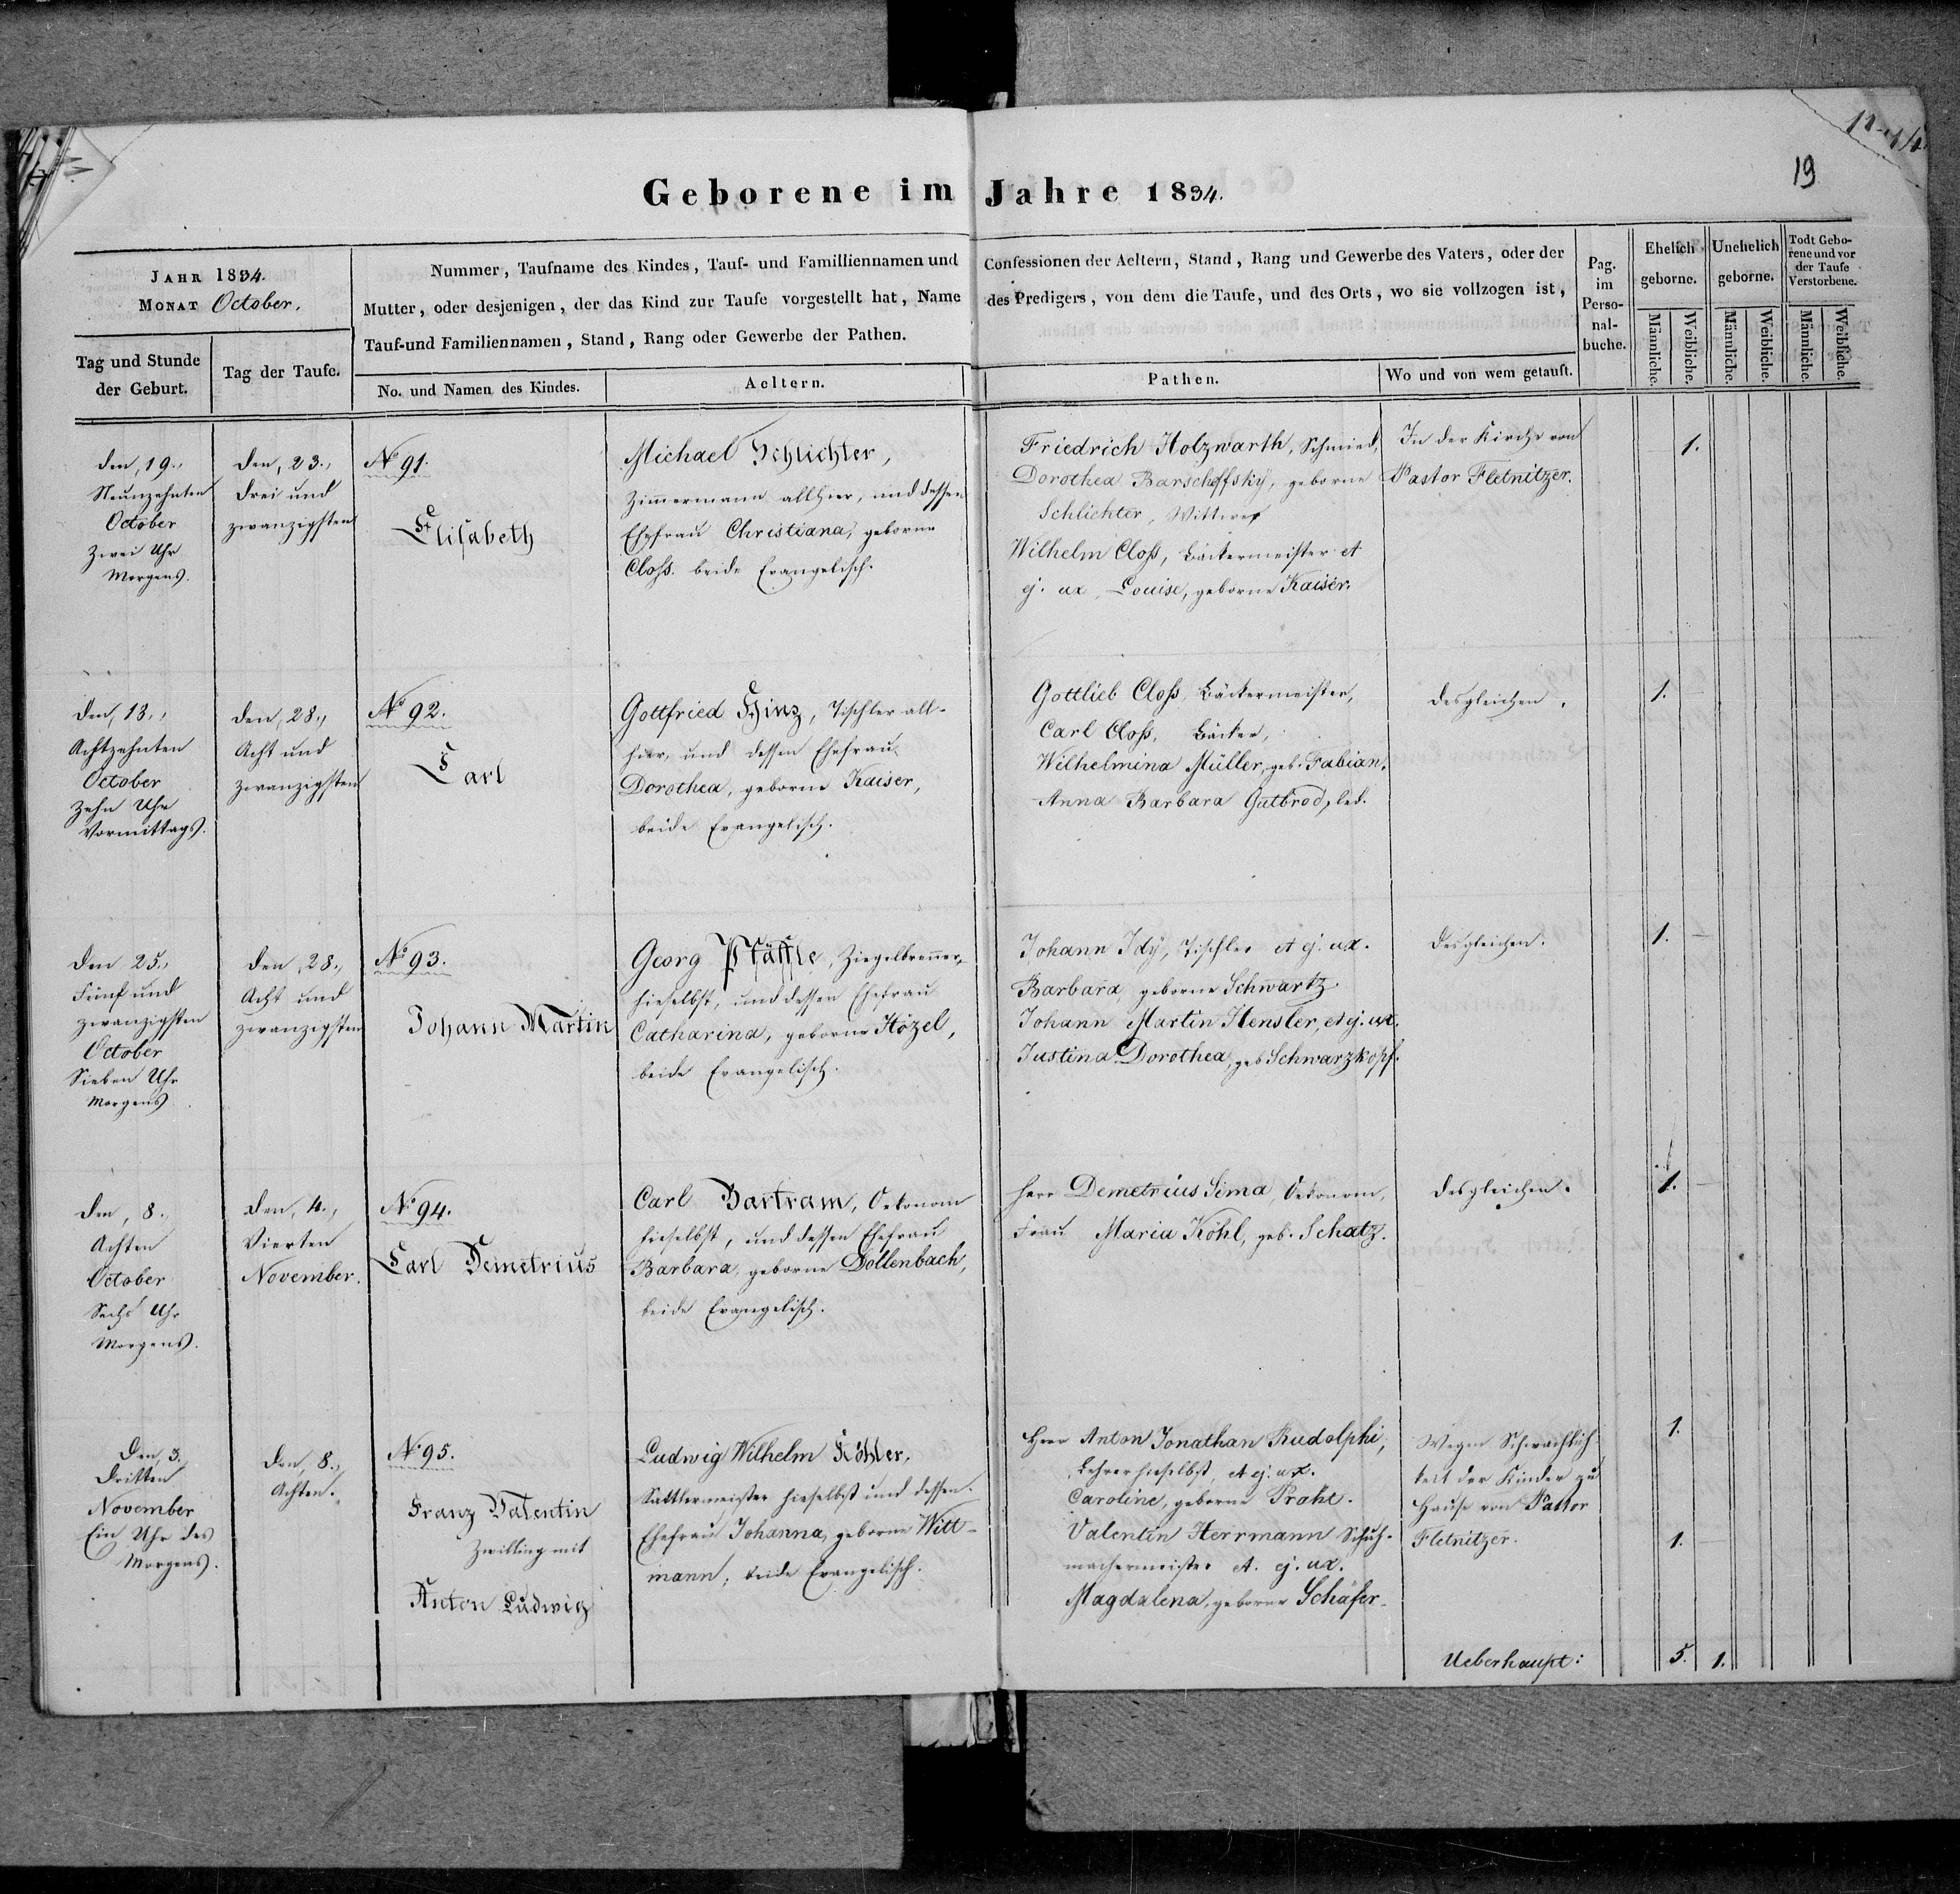 19
Geborene im Jahre 1834.
JAHR 1834.
MONAT October.
Tag und Stunde
der Geburt.
Tag der Taufe.
Nummer, Taufname des Kindes, Tauf- und Familliennamen und Confessionen der Aeltern, Stand, Rang und Gewerbe des Vaters, oder der
Mutter, oder desjenigen, der das Kind zur Taufe vorgestellt hat, Name des Predigers, von dem die Taufe, und des Orts, wo sie vollzogen ist,
Tauf-und Familiennamen, Stand, Rang oder Gewerbe der Pathen.
No. und Namen des Kindes.
Aeltern.
Pathen.
Wo und von wem getauft.
Pag.
im
Perso-
nal-
buche.
Ehelich
geborne.
Unehelich
geborne.
Todt Gebo-
rene und vor
der Taufe
Verstorbene.
Männliche.
Weibliche.
Männliche.
Weibliche.
Männliche.
Weibliche.
den, 19.,
Neunzehnten
October
Zwei Uhr
Morgens.
den, 23.,
drei und
zwanzigsten
No 91.
Elisabeth
Michael Schlichter,
Zimmermann allhier, und dessen
Ehefrau Christiana, geborne
Closs. beide Evangelisch.
Friedrich Holzwarth, Schmied,
Dorothea Barschoffsky, geborne
Schlichter, Wittwe
Wilhelm Closs, Bäckermeister et
ej. ux. Louise, geborne Kaiser.
In der Kirche von
Pastor Fletnitzer.
1.
den, 18.,
Achtzehnten
October
Zehn Uhr
Vormittags.
den, 28.,
Acht und
zwanzigsten
No 92.
Carl
Gottfried Hinz, Tischler all-
hier, und dessen Ehefrau
Dorothea, geborne Kaiser,
beide Evangelisch.
Gottlieb Closs, Bäckermeister,
Carl Closs, Bäcker,
Wilhelmina Müller, geb. Fabian.
Anna Barbara Gutbrod, led.
desgleichen.
1.
den 25.,
Fünf und
zwanzigsten
October
Sieben Uhr
Morgens
den, 28.,
Acht und
zwanzigsten
No 93.
Johann Martin
Georg Pfäffle, Ziegelbrenner,
hieselbst, und dessen Ehefrau
Catharina, geborne Hözel,
beide Evangelisch.
Johann Idÿ, Tischler et ej. ux.
Barbara, geborne Schwartz.
Johann Martin Hensler, et ej. ux.
Justina Dorothea, geb Schwarzkopf.
desgleichen.
1.
den, 8.,
Achten
October
Sechs Uhr
Morgens.
den, 4.,
Vierten
November.
No 94.
Carl Demetrius
Carl Bartram, Oekonom
hieselbst, und dessen Ehefrau
Barbara, geborne Dollenbach,
beide Evangelisch.
Herr Demetrius Sima, Oekonom,
Frau Maria Köhl, geb. Schatz.
desgleichen.
1.
Den, 3.
Dritten
November
Ein Uhr des
Morgens.
den, 8.,
Achten.
No 95.
Franz Valentin
Zwilling mit
Anton Ludwig
Ludwig Wilhelm Köhler,
Sattlermeister hieselbst und dessen
Ehefrau Johanna, geborne Witt-
mann, beide Evangelisch.
Herr Anton Jonathan Rudolphi,
Lehrer hieselbst, et ej. ux.
Caroline, geborne Prahl.
Valentin Herrmann Schuh-
machermeister et. ej. ux.
Magdalena, geborne Schäfer.
Wegen Schwachlich-
keit der Kinder zu
Hause von Pastor
Fletnitzer.
1.
1.
Ueberhaupt:
5. 1.